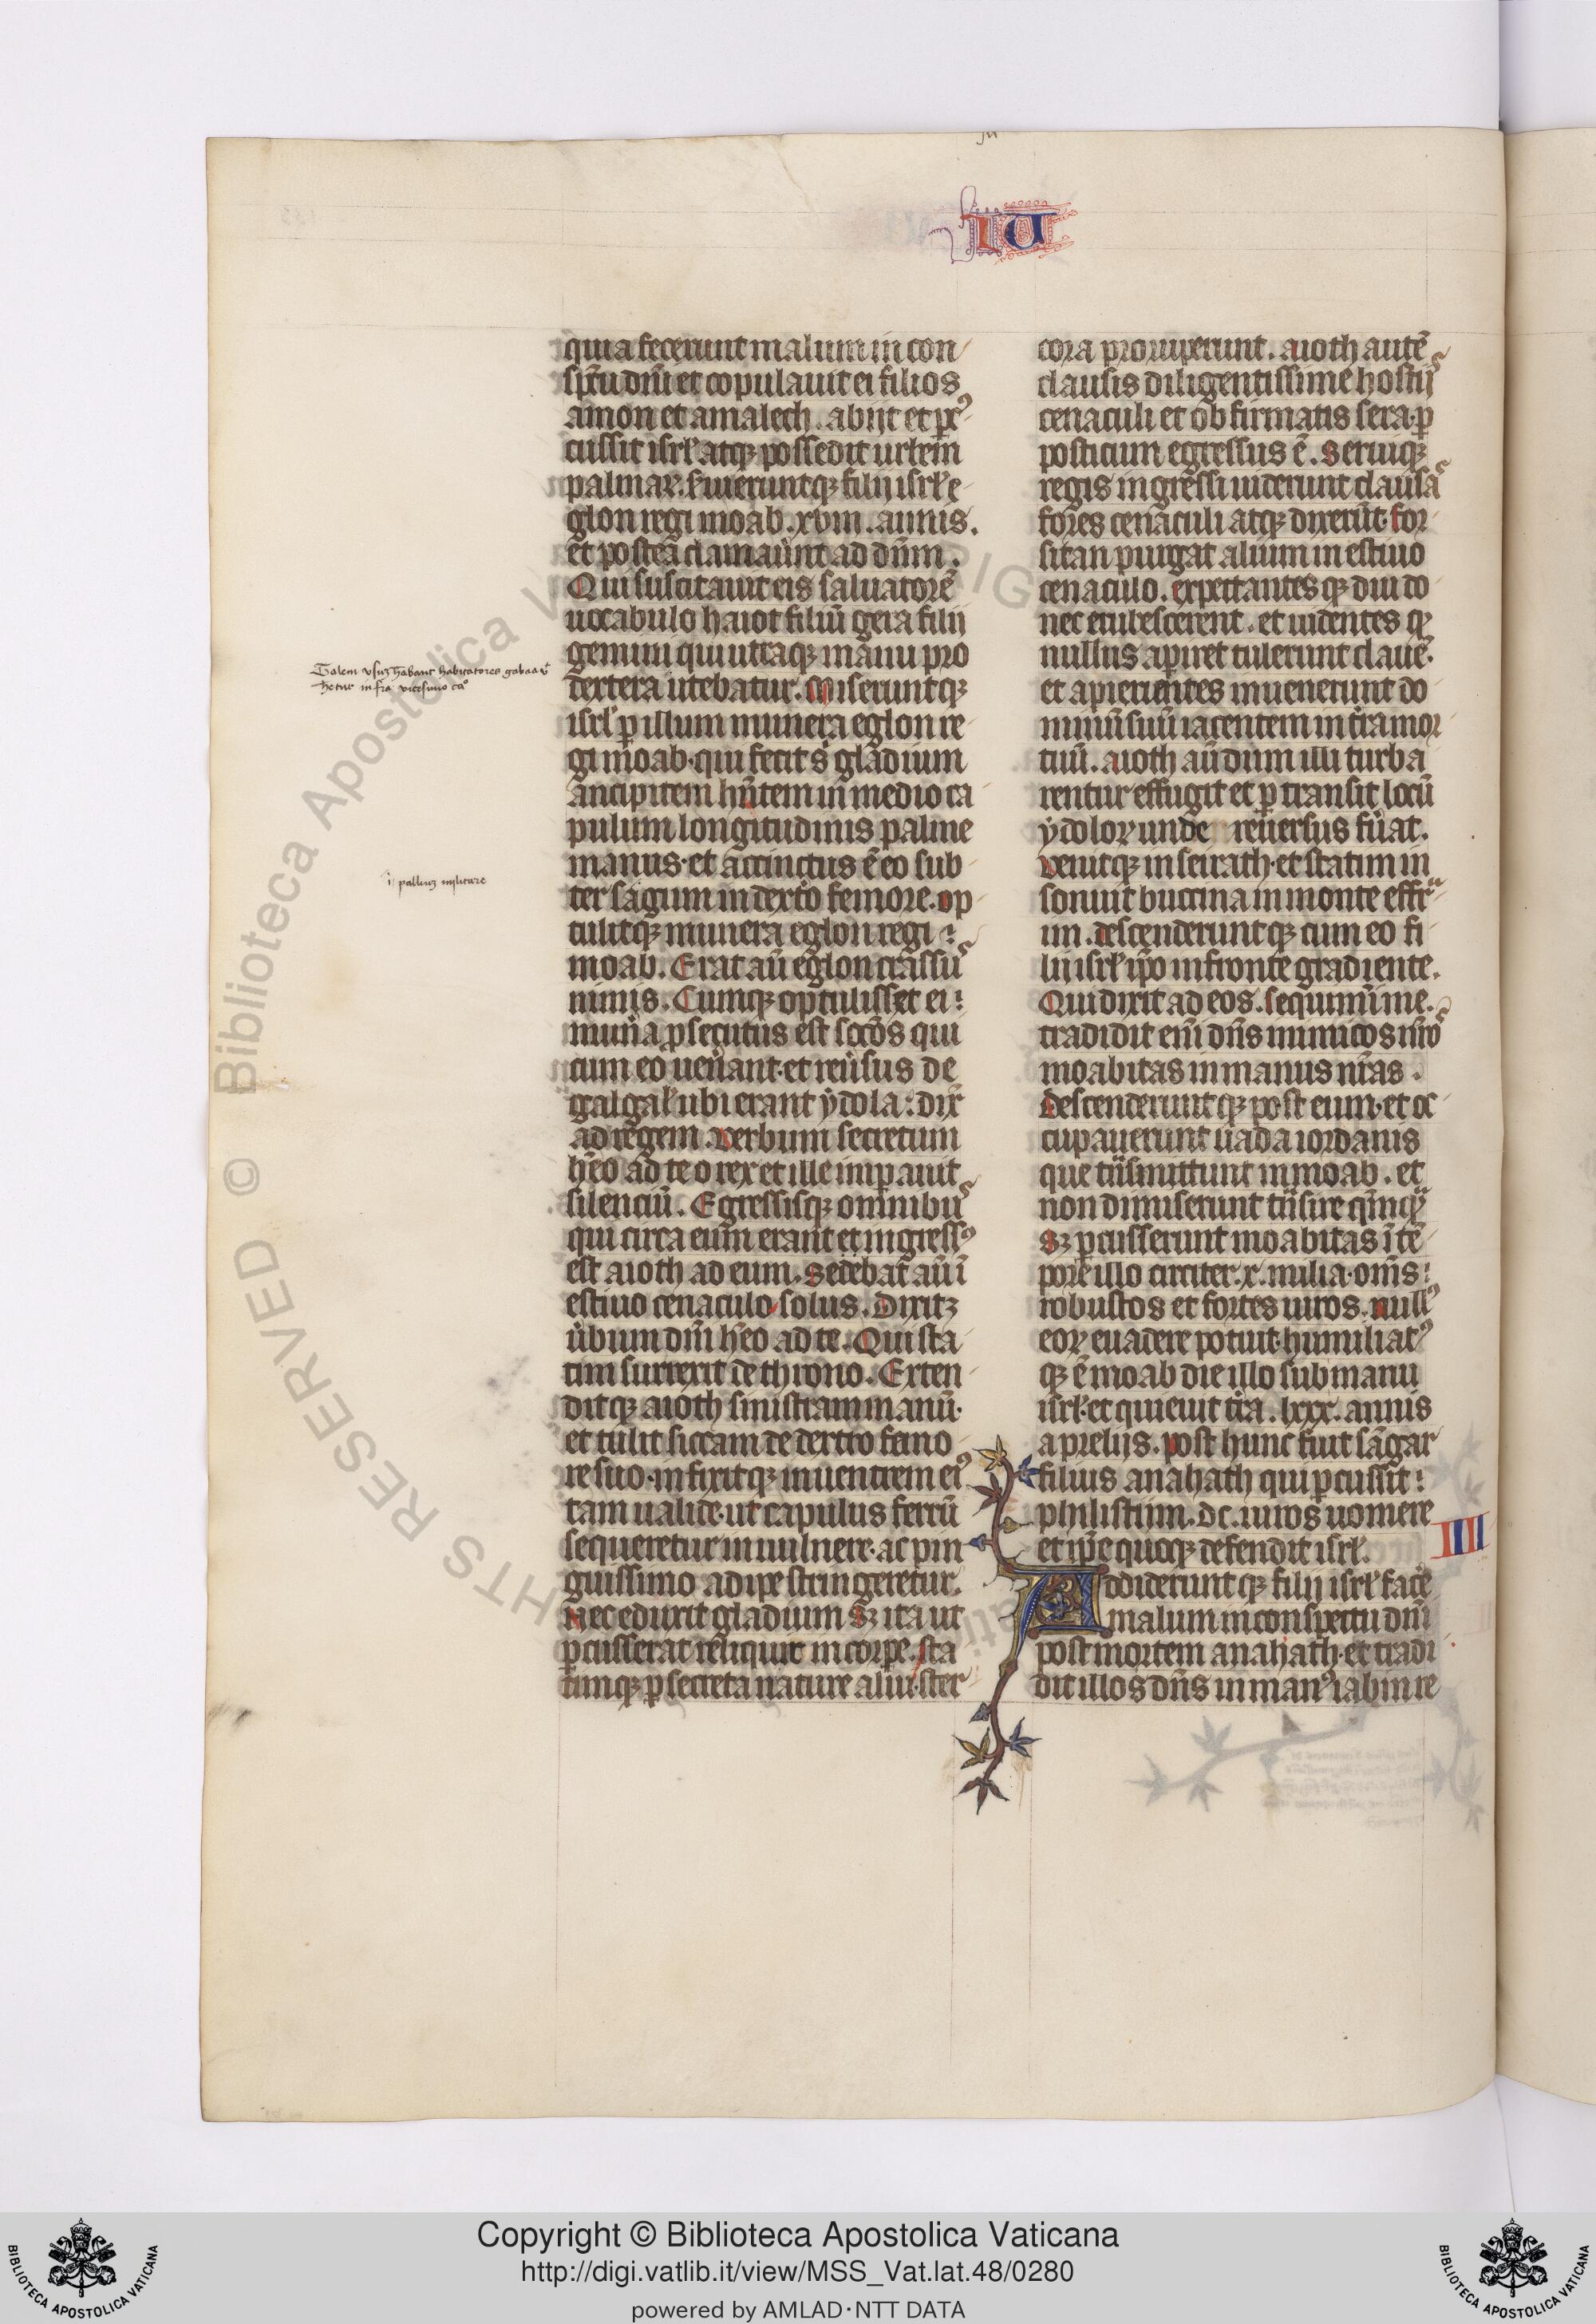 IU
quia fecerunt malum in con
sp̄tu dn̄i et copulauit ei filios
amon et amalech. abijt et ꝑꝰ
cussit isrl̄ atqꝫ possedit urbem
palmaꝝ. s̄uieruntqꝫ filij isrl̄ e
glon regi moab .xvııı. annis.
et postea clamauunt ad dn̄m.
Qui suscitauit eis saluatorē
uocabulo haiot filiū gera filij
gemini qui utraqꝫ manu pro
dextera utebatur. Miseruntqꝫ
isrl̄ ꝑ illum munera eglon re
gi moab. qui fecit s̕ gladium
ancipitem hn̄tem in medio ca
pulum longitudinis palme
manus. et accinctus ē eo sub
ter sagum in dextro femore. op
tulitqꝫ munera eglon regi
moab. Erat aū eglon crassus
nimis. Cumqꝫ optulisset ei
mun̄a ꝓsecutus est socios qui
cum eo uen̄ant. et reuersus de
galgal̄ ubi erant ydola: dix̄
ad regem. verbum secretum
hēo ad te o rex et ille imꝑauit
silenciū. Egressisqꝫ omnibus
qui circa eum erant et ingressꝰ
est aioth ad eum. Sedebat aū ī
estiuo cenaculo solus. Dixitqꝫ
ūbium dn̄i hēo ad te. Qui sta
tim surrexit de throno. Exten
ditqꝫ aioth sinistram manū.
et tulit siccam de dextro femo
re suo. infixitqꝫ in uentrem eiꝰ
tam ualide. ut capulus ferrū
sequeretur in uulnere. ac pin
guissimo adipe stringeretur.
Nec eduxit gladium sꝫ ita ut
ꝑcusserat reliquit in corꝑe. sta
timqꝫ ꝑ secreta nature alui ster
Talem usuꝫ habant habitatores gabaa vt
hetur infra vicesimo caᵒ
.i. palliuꝫ militare
cora proruperunt. aioth autē
clausis diligentissime hostijs
cenaculi et obfirmatis sera. ꝑ
posticum egressus ē. Seruiqꝫ
regis ingressi uiderunt clausas
fores cenaculi atqꝫ dixerūt. for
sitan purgat aluum in estiuo
cenaculo. expectantesqꝫ diu do
nec erubescerent. et uidentes qꝫ
nullus aperiret tulerunt clauē.
et apierientes inuenerunt do
minū suū iacentem in t̄ra mor
tuū. aioth aū dum illi turba
rentur effugit et ꝑtransit locū
ydoloꝝ unde reuersus fūat.
venitqꝫ in seirath. et statim in
sonuit buccina in monte effra
im. descenderuntqꝫ cum eo fi
lij isrl̄ ip̄o in fronte gradiente.
Qui dixit ad eos. sequimini me.
tradidit eni dn̄s inimicos nr̄os
moabitas in manus nr̄as.
Descenderuntqꝫ post eum. et oc
cupauerunt uada iordanis
que tn̄smittunt in moab. et
non dimiserunt tn̄sire qūnqꝫ
Sꝫ ꝑcusserunt moabitas ī tē
pore illo circiter .x. milia. om̄s
robustos et fortes uiros. nullꝰ
eoꝝ euadere potuit. humiliatꝰ
qꝫ ē moab die illo sub manu
isrl̄. et quieuit t̄ra .lxxx. annis
a prelijs. post hunc fuit sāgar
filius anahath qui ꝑcussit
philistiim .DC. uiros uomere
et ip̄e quoqꝫ defendit isrl̄.
IIII
Addideruntqꝫ filij isrl̄ facē
malum in conspectu dn̄i
post mortem anahath. et tradi
dit illos dn̄s in manꝰ iabin re
© Biblioteca Apostolica V
HTS RESERVED
Copyright © Biblioteca Apostolica Vaticana
http://digi.vatlib.it/view/MSS_Vat.lat.48/0280
powered by AMLAD·NTT DATA
BIBLIOTECA APOSTOLICA VATICANA
BIBLIOTECA APOSTOLICA VATICANA